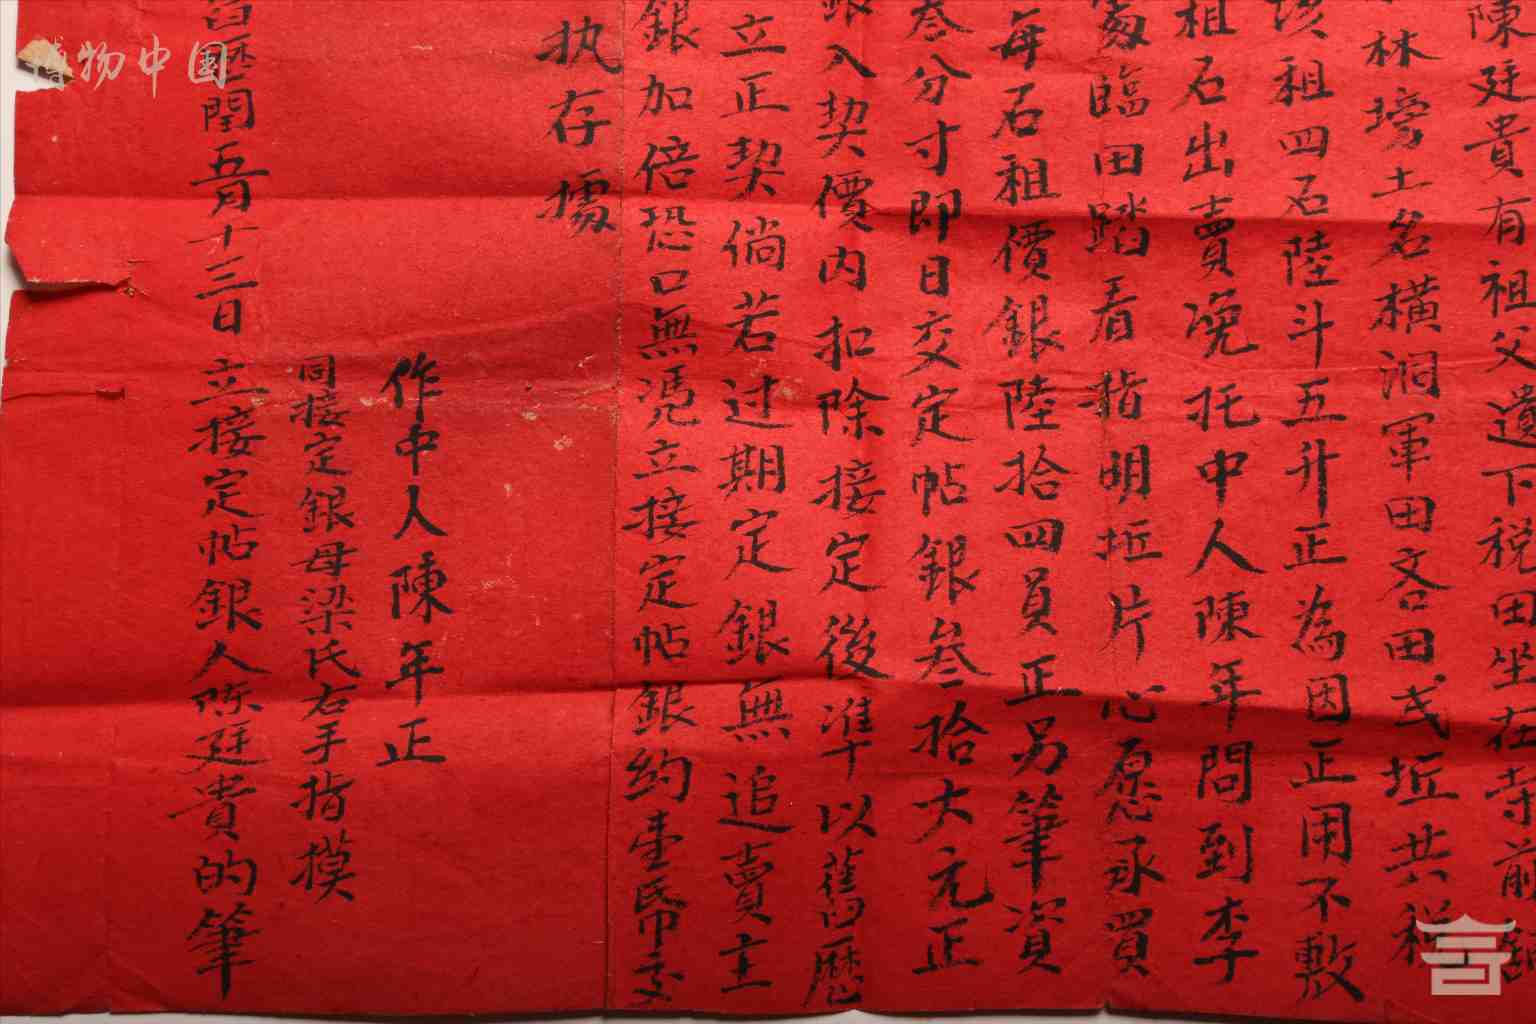 陳廷貴有祖父遺下税田坐在寺前
林塝土名橫洞軍田叁田式坵共税
祖四石陸斗五升正為因正用不敷
祖石出賣浼托中人陳年問到李
臨田踏看指明坵片心愿承買
每石租價銀陸拾四員正另筆資
叁分寸即日交定帖銀叁拾大元正
入契價内扣除接定後准以舊曆
立正契倘若过期定銀無追賣主
銀加倍恐口無憑立接定帖銀約壹帋交
执存據
作中人陳年正
同接定銀母梁氏右手指摸
閏五月十三日立接定帖銀人陈廷貴的筆
博物中国